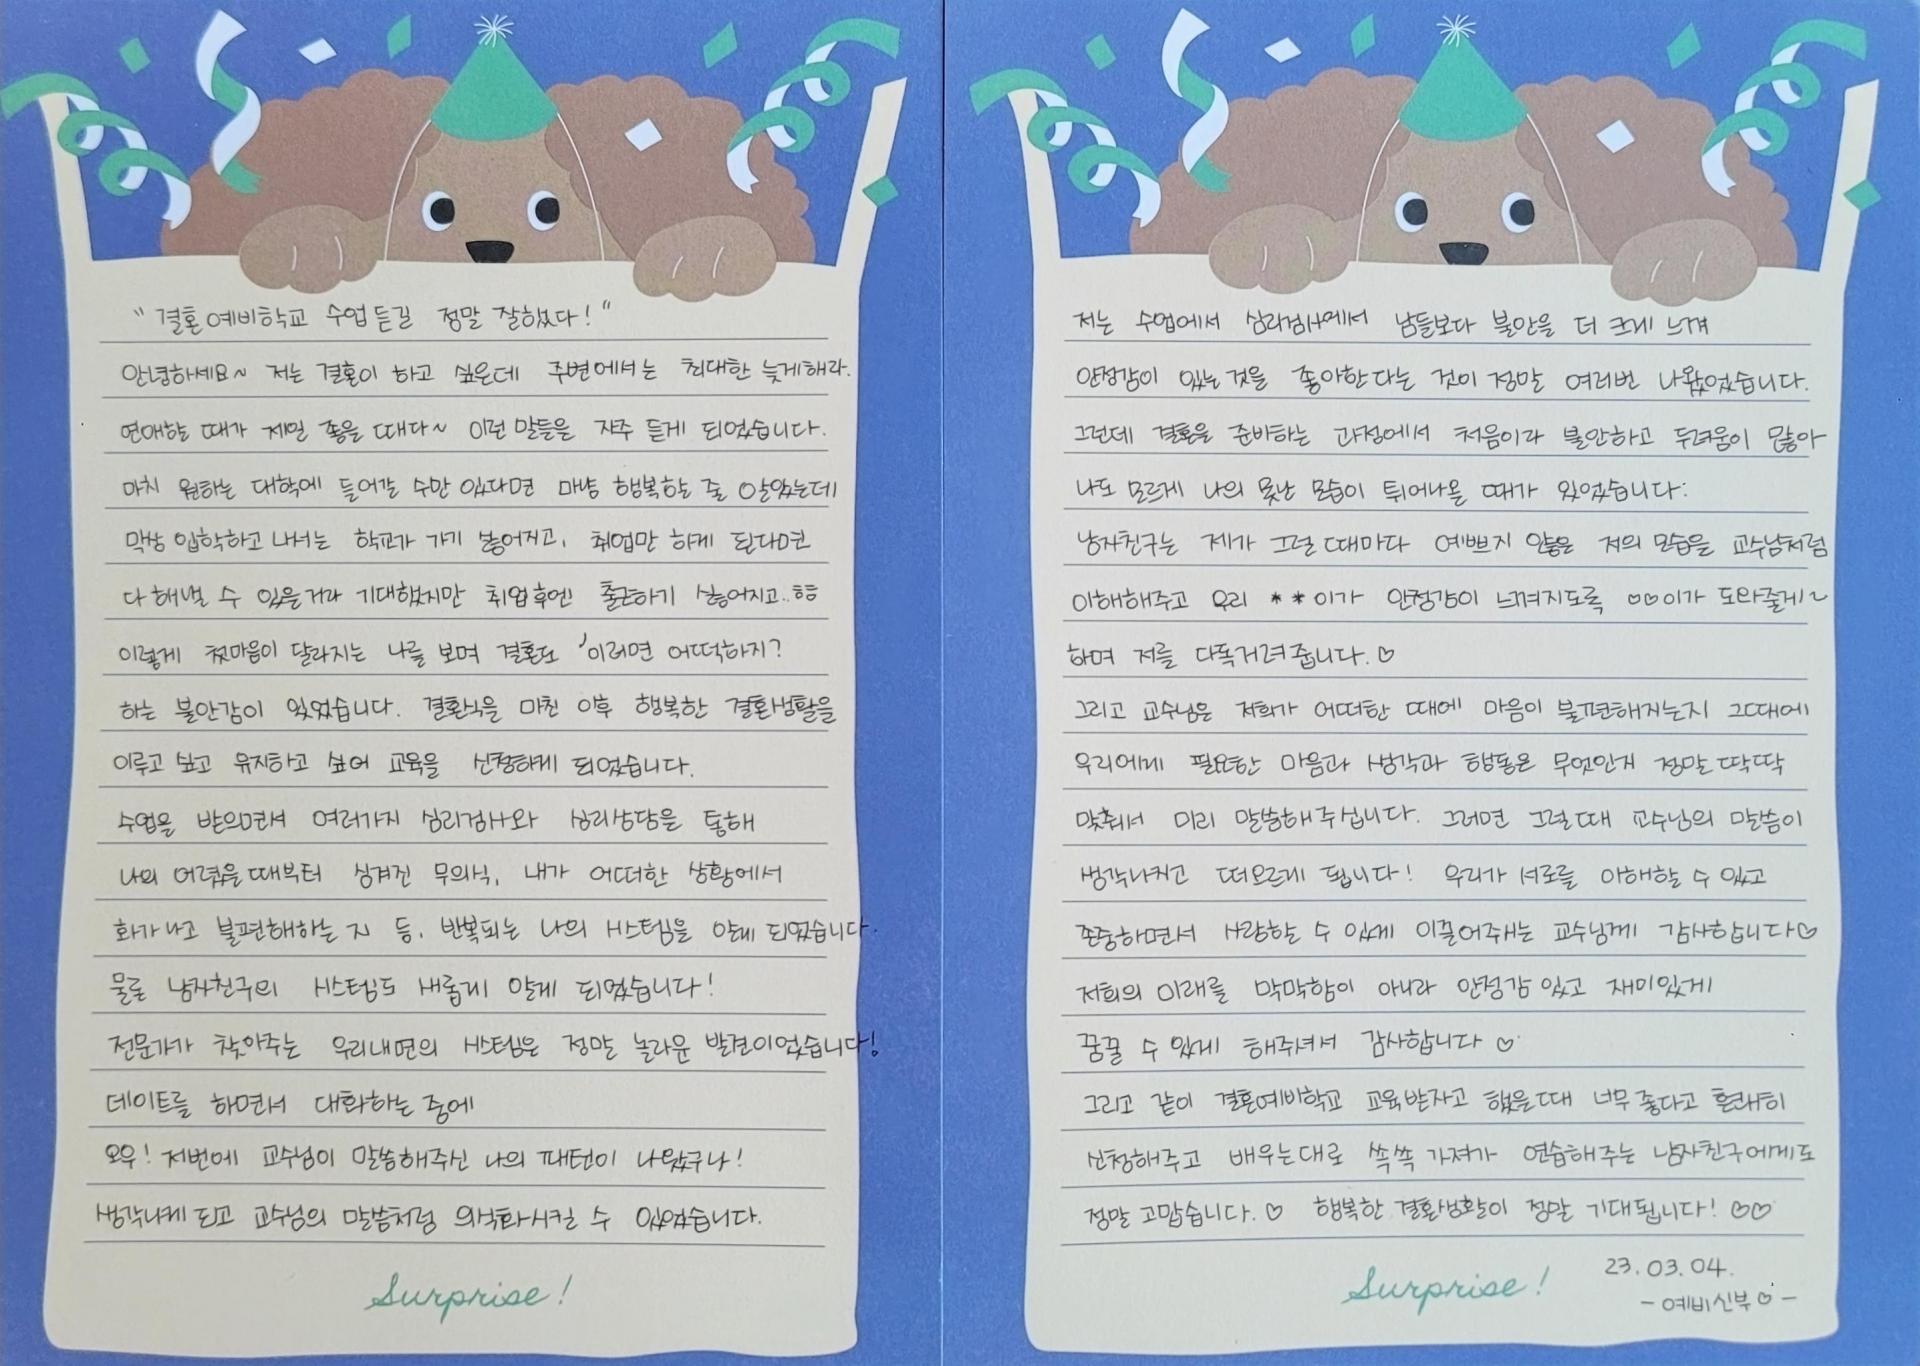 "결혼예비학교 수업듣길 정말 잘했다!"
안녕하세요~ 저는 결혼이 하고 싶은데 주변에서는 최대한 늦게해라.
연애할 때가 제일 좋을 때다~ 이런 말들을 자주 듣게 되었습니다.
마치 원하는 대학에 들어갈 수만 있다면 마냥 행복할 줄 알았는데
막상 입학하고 나서는 학교가 가기 싫어지고, 취업만 하게 된다면
다 해낼 수 있을거라 기대했지만 취업후엔 출근하기 싫어지고..ㅎㅎ
이렇게 첫마음이 달라지는 나를 보며 결혼도 '이러면 어떡하지?
하는 불안감이 있었습니다. 결혼식을 마친 이후 행복한 결혼생활을
이루고 싶고 유지하고 싶어 교육을 신청하게 되었습니다.
수업을 받으면서 여러가지 심리검사와 심리상담을 통해
나의 어렸을때부터 심겨진 무의식, 내가 어떠한 상황에서
화가나고 불편해하는 지 등, 반복되는 나의 시스템을 알게 되었습니다.
물론 남자친구의 시스템도 새롭게 알게 되었습니다!
전문가가 찾아주는 우리내면의 시스템은 정말 놀라운 발견이었습니다!
데이트를 하면서 대화하는 중에
오우! 저번에 교수님이 말씀해주신 나의 패턴이 나왔구나!
생각나게 되고 교수님의 말씀처럼 의식화시킬 수 있었습니다.
Surprise!
저는 수업에서 심리검사에서 남들보다 불안을 더 크게 느껴
안정감이 있는 것을 좋아한다는 것이 정말 여러번 나왔었습니다.
그런데 결혼을 준비하는 과정에서 처음이라 불안하고 두려움이 많아
나도 모르게 나의 못난 모습이 튀어나올 때가 있었습니다.
남자친구는 제가 그럴 때마다 예쁘지 않은 저의 모습을 교수님처럼
이해해주고 우리 **이가 안정감이 느껴지도록 ♡♡이가 도와줄게~
하며 저를 다독거려줍니다.♡
그리고 교수님은 저희가 어떠한 때에 마음이 불편해지는지 그때에
우리에게 필요한 마음과 생각과 행동은 무엇인지 정말 딱딱
맞춰서 미리 말씀해주십니다. 그러면 그럴때 교수님의 말씀이
생각나지고 떠오르게 됩니다! 우리가 서로를 이해할 수 있고
존중하면서 사랑할 수 있게 이끌어주시는 교수님께 감사합니다♡
저희의 미래를 막막함이 아니라 안정감 있고 재미있게
꿈꿀 수 있게 해주셔서 감사합니다 ♡
그리고 같이 결혼예비학교 교육받자고 했을때 너무 좋다고 흔쾌히
신청해주고 배우는대로 쏙쏙 가져가 연습해주는 남자친구에게도
정말 고맙습니다.♡ 행복한 결혼생활이 정말 기대됩니다! ♡♡
Surprise!
23.03.04.
-예비신부♡-